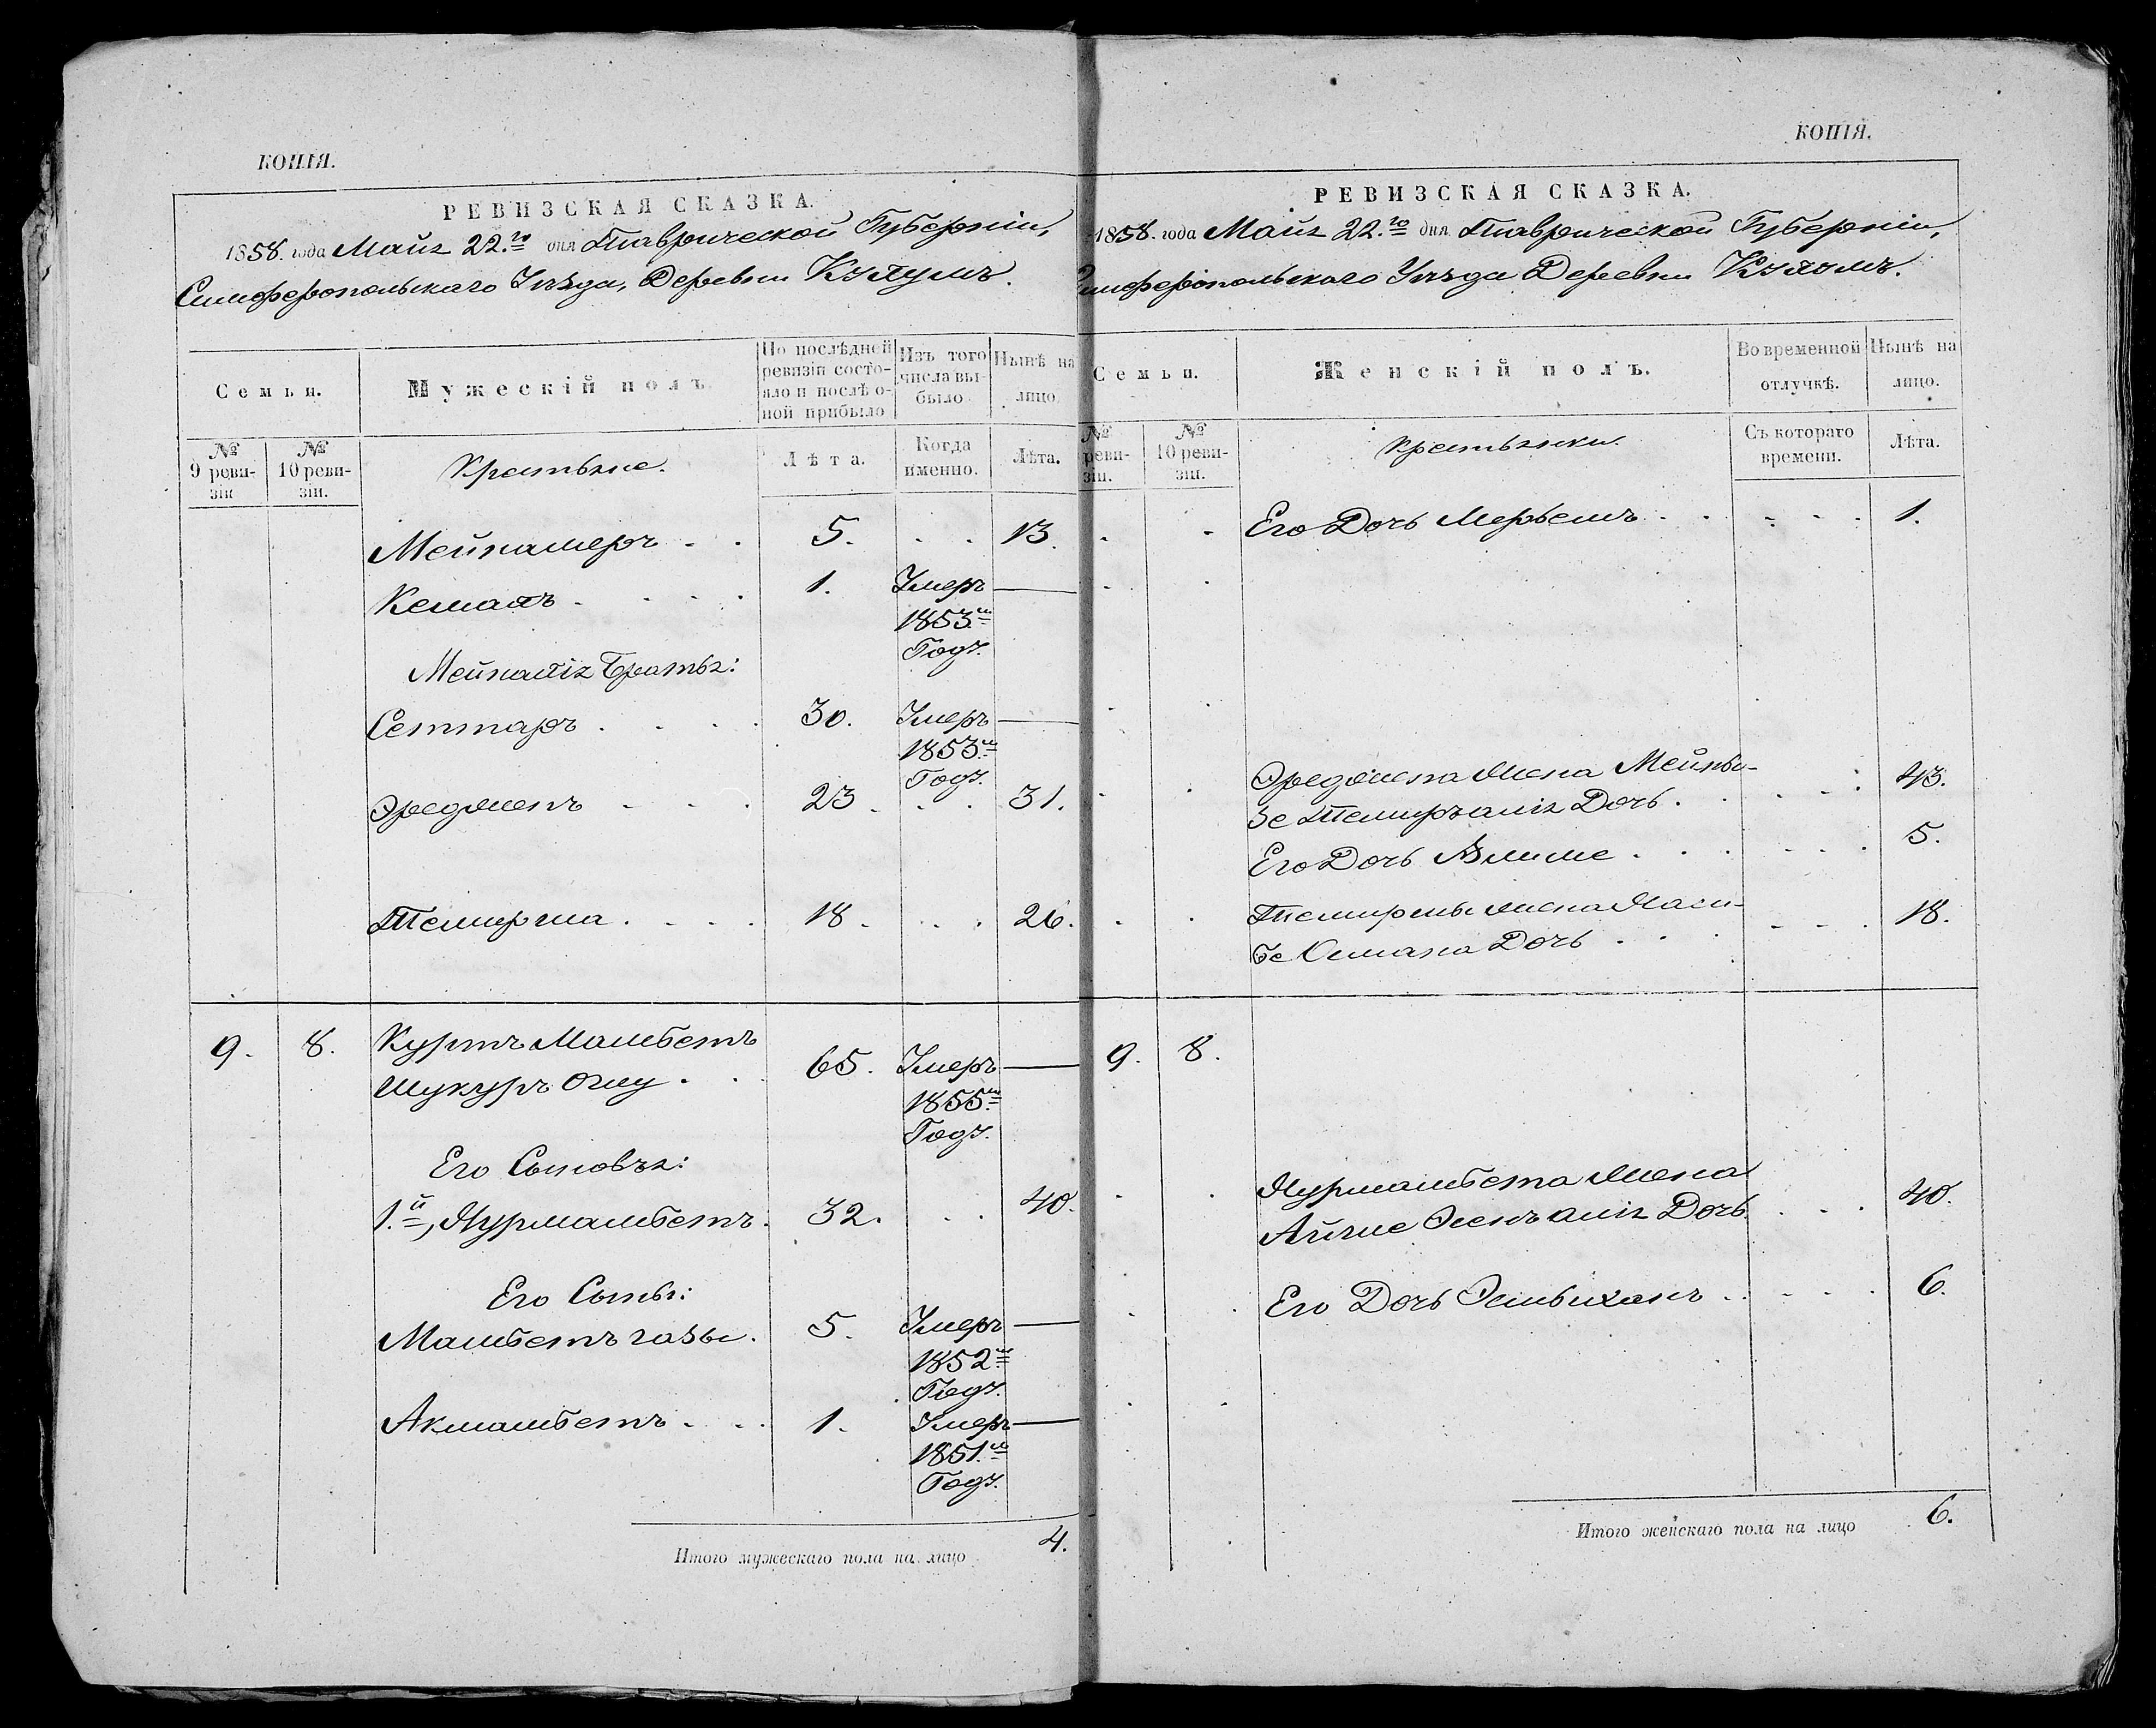 КОПІЯ.
РЕВИЗСКАЯ СКАЗКА.
1858. года Мая 22.го дня Таврической Губерніи,
Симферопольскаго Уѣзда, Деревни
Семьи.
Мужескій полъ
По послѣдней ревизіи состояло и послѣ оной прибыло
Изъ того числа выбыло
Нынѣ на лицо
№ 9 ревизіи
№ 10 ревизіи.
Крестьяне.
Лѣта.
Когда именно.
Лѣта.
5. 13.
1. Умеръ
1853.м
Годъ.
Братья:
Сеттаръ 30. Умеръ
1853.м
Годъ.
23. 31.
Темирша 18. 26.
9. 8. Куртъ Мамбетъ
Шукуръ Оглу 65. Умеръ
1855.м
Годъ.
Его Сыновья:
1.й, Нурмамбетъ 32. 40.
Его Сыны:
Мамбетъ газы. 5. Умеръ
1852м
Годъ.
Акмамбетъ 1. Умеръ
1851.м
Годъ.
Итого мужескаго пола на лицо 4.
КОПІЯ.
РЕВИЗСКАЯ СКАЗКА.
1858. года Мая 22.го дня Таврической Губерніи,
Симферопольскаго Уѣзда Деревни
Семьи.
Женскій полъ.
Во временной отлучкѣ.
Нынѣ на лицо.
№ реви-
зіи.
№ 10 ревизіи.
Крестьянки.
Съ котораго времени.
Лѣта.
Его Дочь Мерьемъ 1.
Жена
Дочь. 43.
Его Дочь 5.
Жена
бе Османа Дочь 18.
9. 8.
Нурмамбета Жена
Айше Дочь. 40.
Его Дочь 6.
Итого женскаго пола на лицо 6.